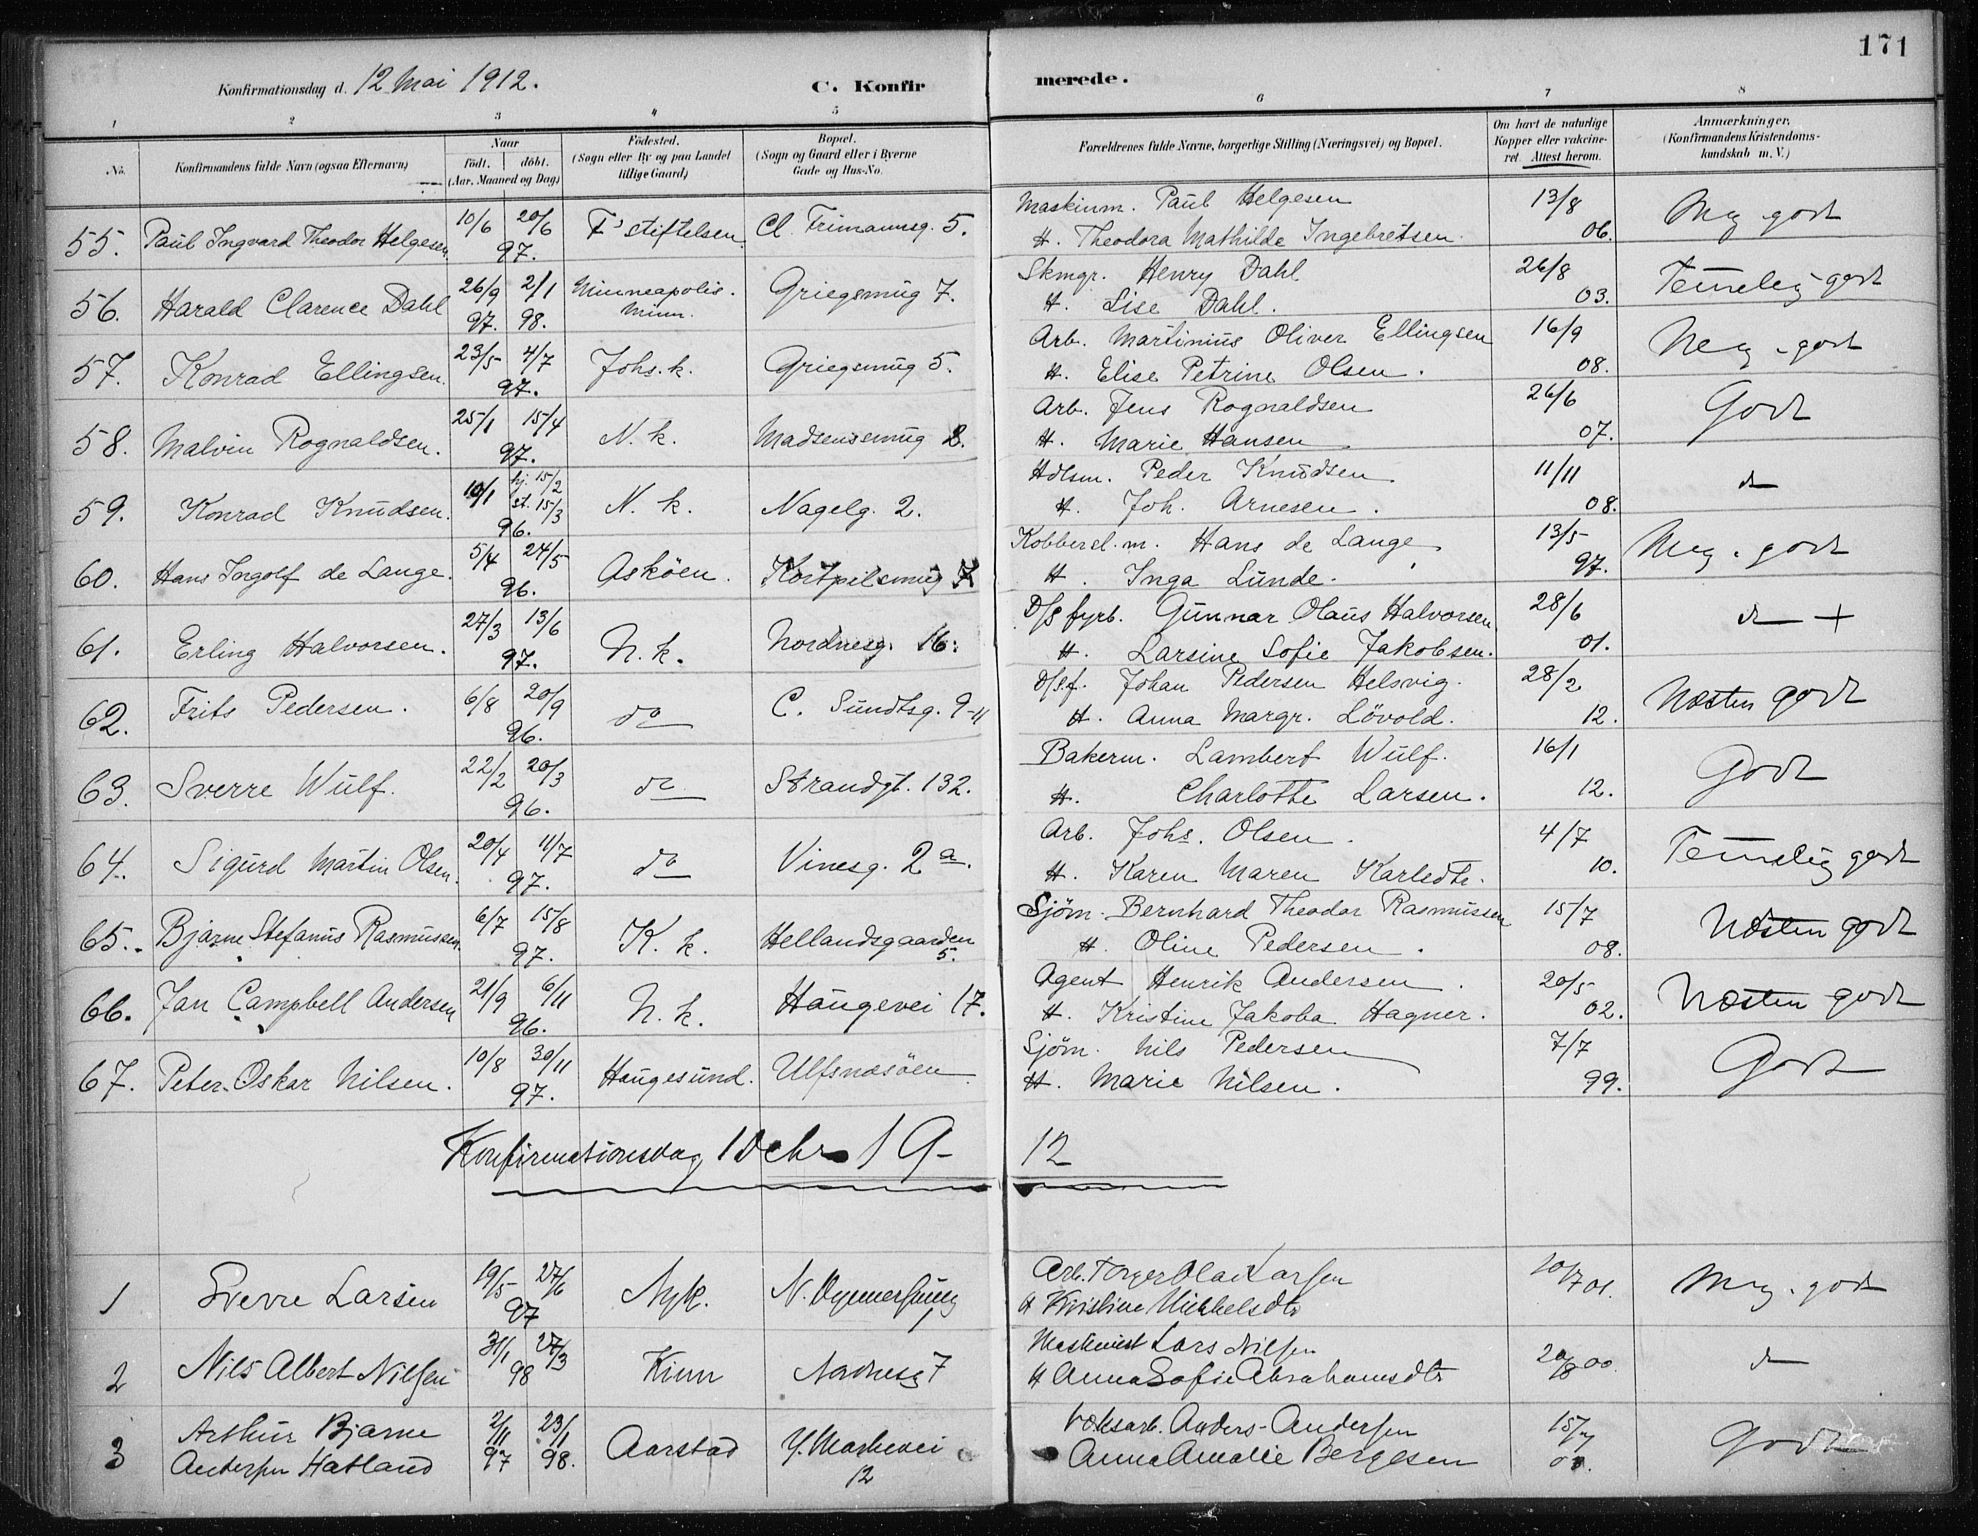 171
Konfirmationsdag d. 12 Mai 1912. C. Konfirmerede.
1 2 3 4 5 6 7 8
No. Konfirmandens fulde Navn (ogsaa Efternavn) Naar födt. döbt. (Aar, Maaned og Dag) Födested. (Sogn eller By og paa Landet tillige Gaard) Bopæl. (Sogn og Gaard eller i Byerne Gade og Hus-No. Forældrenes fulde Navne, borgerlige Stilling (Næringsvei) og Bopæl. Om havt de naturlige Kopper eller vakcineret. Attest herom. Anmærkninger. (Konfirmandens Kristendomskundskab m. V.)
55. Paul Ingvard Theodor Helgesen 10/6 20/6 97. F's stiftelsen Cl. Frimannsg. 5. Maskinm. Paul Helgesen 13/8 06. Meg. godt
H. Theodora Mathilde Ingebretsen.
56. Harald Clarence Dahl 26/9 97. 2/1 98. Minneapolis. Minn. Griegsmug 7. Skmgr. Henry Dahl 26/8 03. Temelig godt
H. Lise Dahl.
57. Konrad Ellingsen. 23/5 4/7 97. Johs. k. Griegsmug 5. Arb. Martinius Oliver Ellingsen 16/9 08. Meg. godt
H. Elise Petrine Olsen.
58. Malvin Rognaldsen. 25/1 15/4 97. N. k. Madsensmug 8. Arb. Jens Rognaldsen 26/6 07. Godt
H. Marie Hansen
59. Konrad Knudsen. 10/1 hj. 15/2 st. 15/3 96. N. k. Nagelg. 2. Hdlsm. Peder Knudsen. 11/11 08. do
H. Joh. Arnesen.
60. Hans Ingolf de Lange. 5/4 24/5 96. Asköen. Kortpilsmug 7 Kobbersl.m. Hans de Lange 13/5 97. Meg. godt
H. Inga Lunde.
61. Erling Halvorsen. 27/3 13/6 97. N. k. Nordnesg. 16. D/S fyrb. Gunnar Olaus Halvorsen 28/6 01. do +
H. Larsine Sofie Jakobsen.
62. Frits Pedersen. 6/8 20/9 96. do C. Sundtsg. 9-11 D/S.f. Johan Pedersen Helsvig. 28/2 12. Næsten godt
H. Anna Margr. Lövold.
63. Sverre Wulf. 22/2 20/3 96. do Strandgt. 132. Bakerm. Lambert Wulf. 16/1 12. Godt
H. Charlotte Larsen.
64. Sigurd Martin Olsen. 20/4 11/7 97. do Vinesg. 2 a. Arb. Johs. Olsen. 4/7 10. Temelig godt
H. Karen Maren Karlsdtr.
65. Bjarne Stefanus Rasmussen. 6/7 15/8 97. K. k. Hellandsgaarden 5. Sjøm. Bernhard Theodor Rasmussen 15/7 08. Næsten godt
H. Oline Pedersen.
66. Jan Campbell Andersen 21/9 6/11 96. N. k. Haugevei 17. Agent Henrik Andersen. 20/5 02. Næsten godt
H. Kristine Jakoba Hagner.
67. Peter Oskar Nilsen. 10/8 30/11 97. Haugesund. Ulfsnæsöen Sjøm. Nils Pedersen 7/7 99. Godt
H. Marie Nilsen.
Konfirmationsdag 1 Dcbr 1912
1 Sverre Larsen 19/5 27/6 97 Nyk. Arb. Torger Olai Larsen 10/7 01. Meg. godt
H Kristine Mikkelsdtr
2 Nils Albert Nilsen 31/1 27/3 98 Kinn Nordnesg 7 Maskinist Lars Nilsen 20/8 00. do
H Anna Sofie Abrahamsdtr
3 Arthur Bjarne Andersen Hatland 2/11 97 23/1 98. Aarstad Y. Markevei 12 Anders Andersen 15/7 Godt
Anna Amalie Bergesen